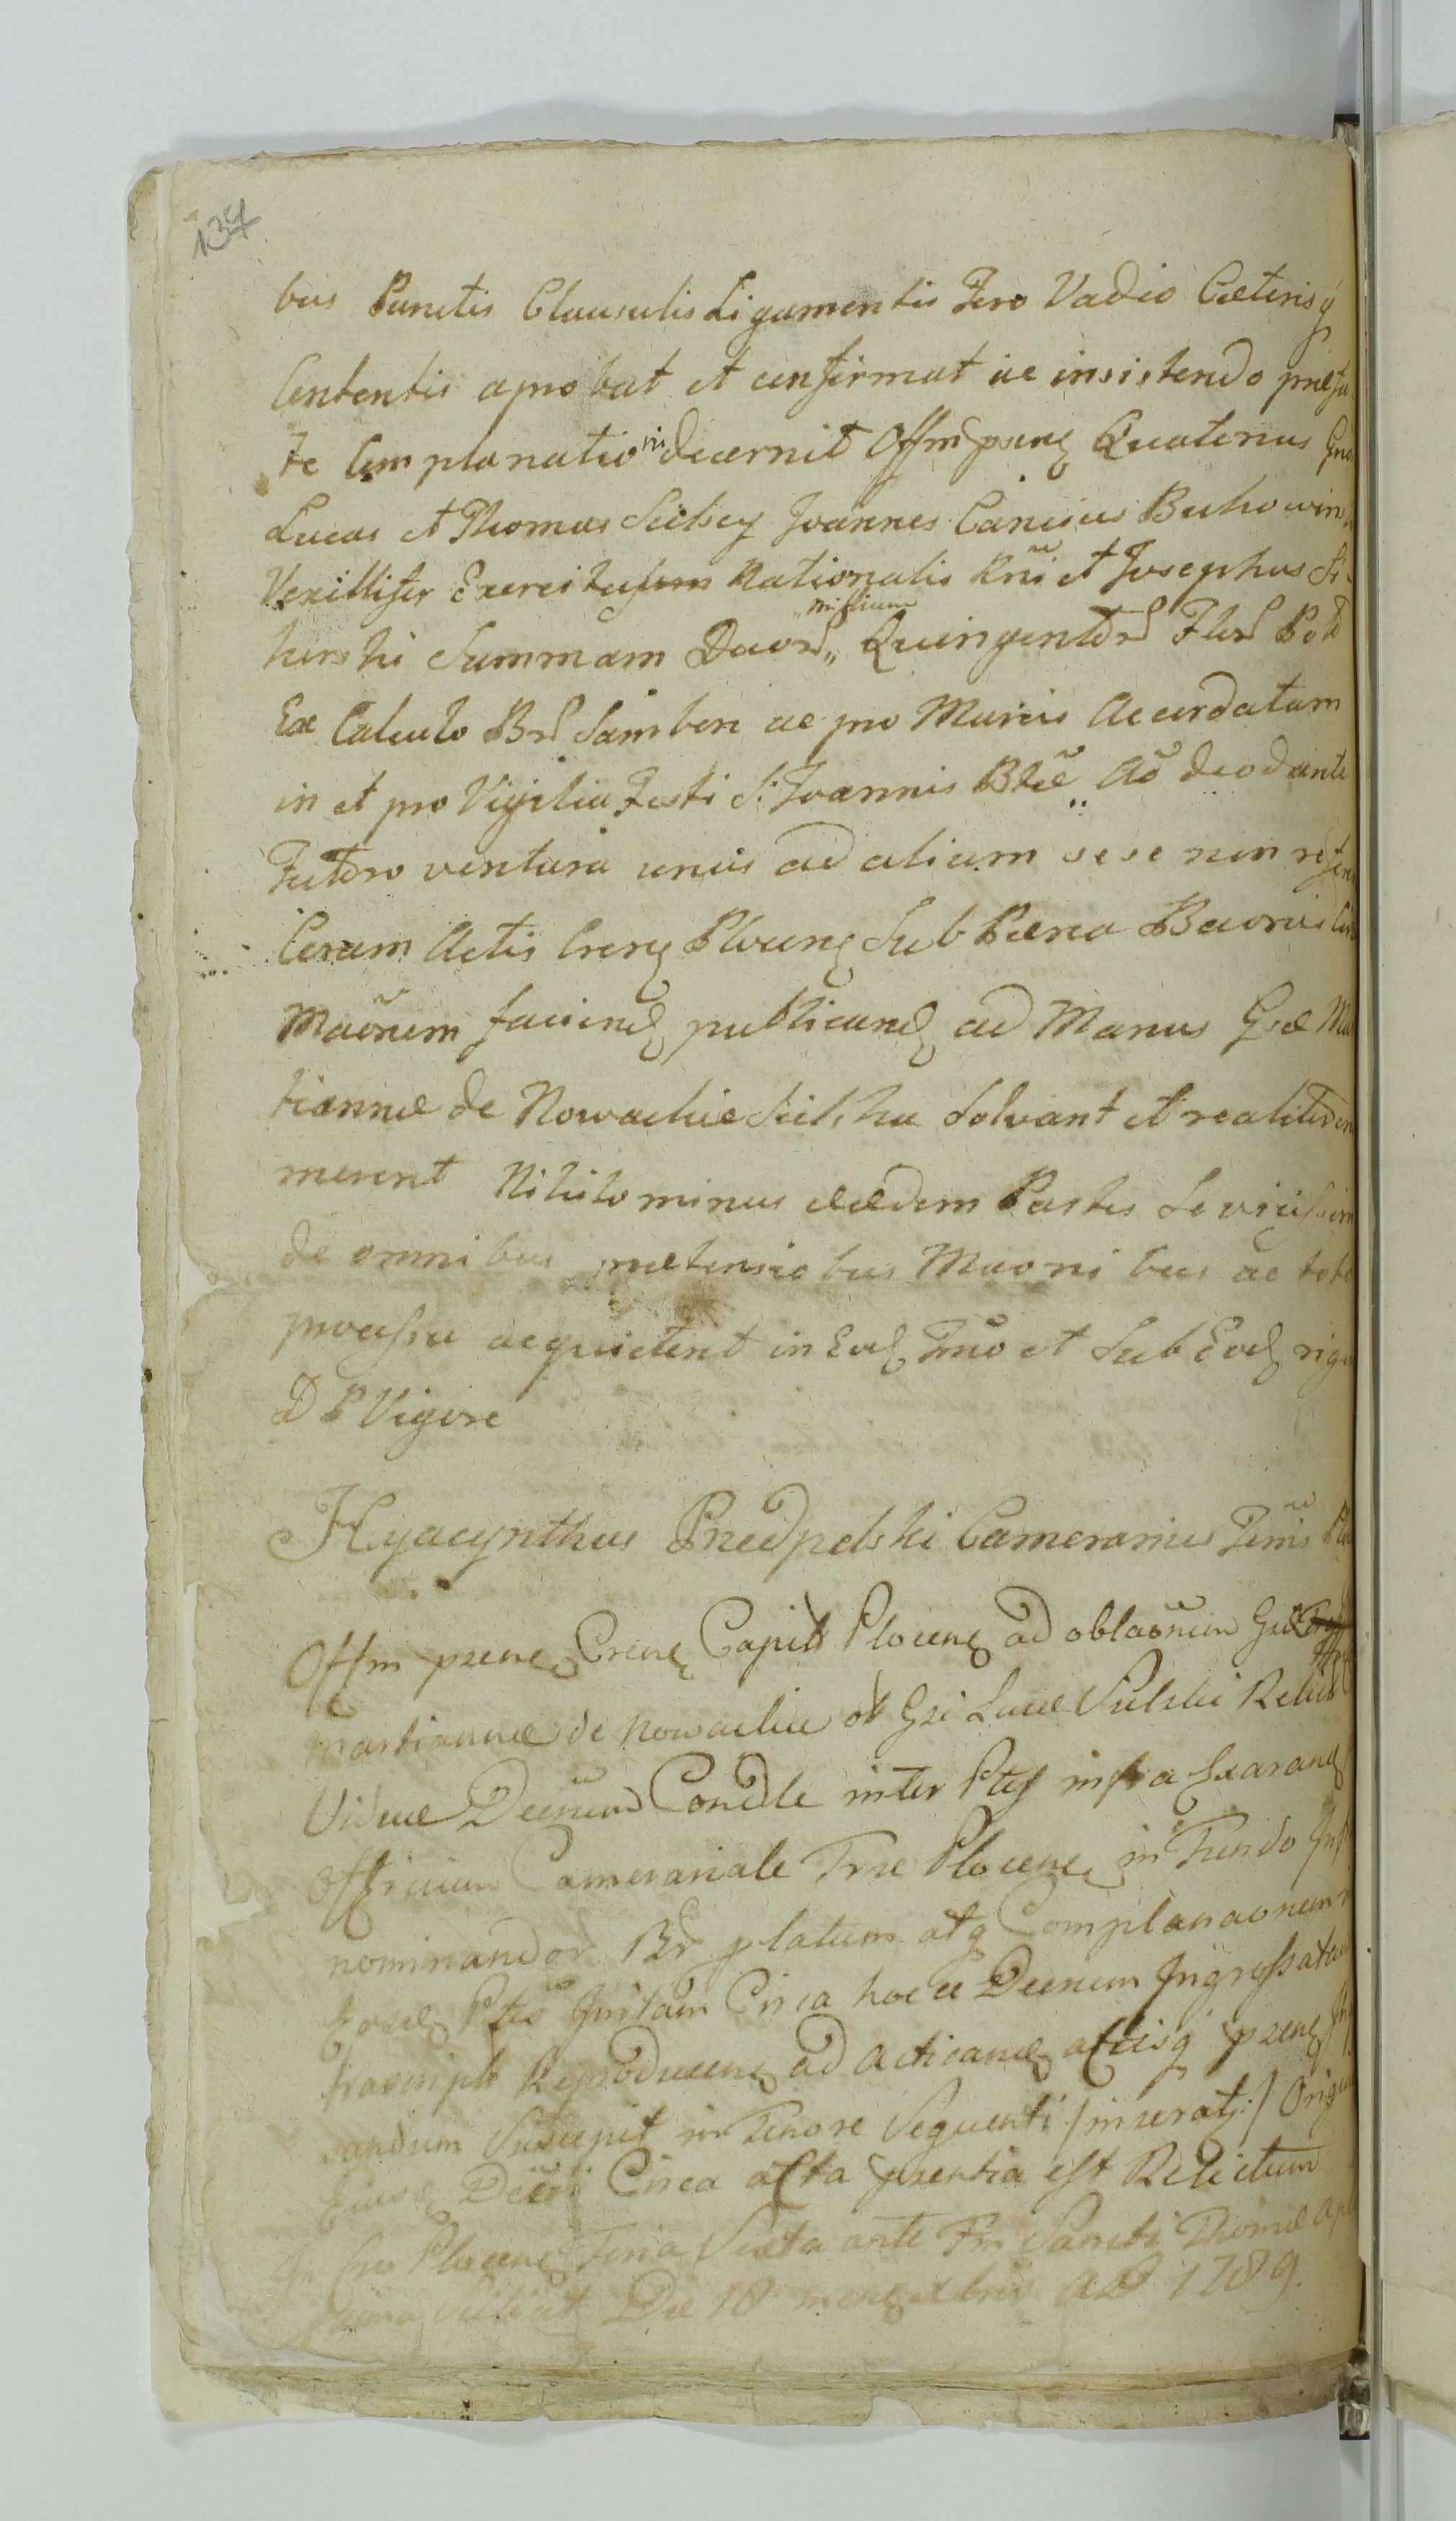 137
bus Punctis Clausulis Ligamentis Fero Vadio Cæterisq
Contentis aprobat et confirmat ac insistendo præfa
te Complanationi decernit Offm psens Quatenus Gnõ
Lucas et Thomas Sielscy Joannes Cancius Bukowins
Vexillifer Exercitus Nationalis Rñi et Josephus Si
kirski Summam Duor„ millium Quingentor Flor Pol
Ex Calculo Br Sambor ac pro Murcis Acordatam
in et pro Vigilia Festi S: Joannis Btæ Aõ deo dante
Futoro ventura unus ad alium sese non referen
Coram Actis Crens Plocens Sub Pæna Baonis
Maõnem faciend publicand ad Manus Gsæ Ma
tiannæ de Nowackie Sielska Solvant et realiter
merent Nihilominus eædem Partes Se vicissim
de omnibus prætensiobus Maonibus ac toto
processu acquietent in Eod Tmõ et Sub Eod rigo
D P Vigore
Hyacynthus Przedpelski Camerarius Trnis
Offm psens Crens Capitle Plocens ad oblaõnem Gsæ
Martiannæ de Nowackie olt Gsi Lucæ Sielski Relictæ
Viduæ Decrum Condle inter Ptes infra Exarand
Officium Camerariale Trræ Plocens in Fundo Inf
nominandor Br platum atq Complanaonem
Easd Ptes Initam Circa hocce Decrum Ingrossatam
frascripto Reproducens ad acticand actisq psens In
sandum Suscepit in Tenore Sequenti /: inseratr :/ Origin
Ejusd Decri Circa acta psentia est Relictum
Plocens Feria Sexta ante Fm Sancti Thomæ Apli
Die 18 mens xbris AD 1789.